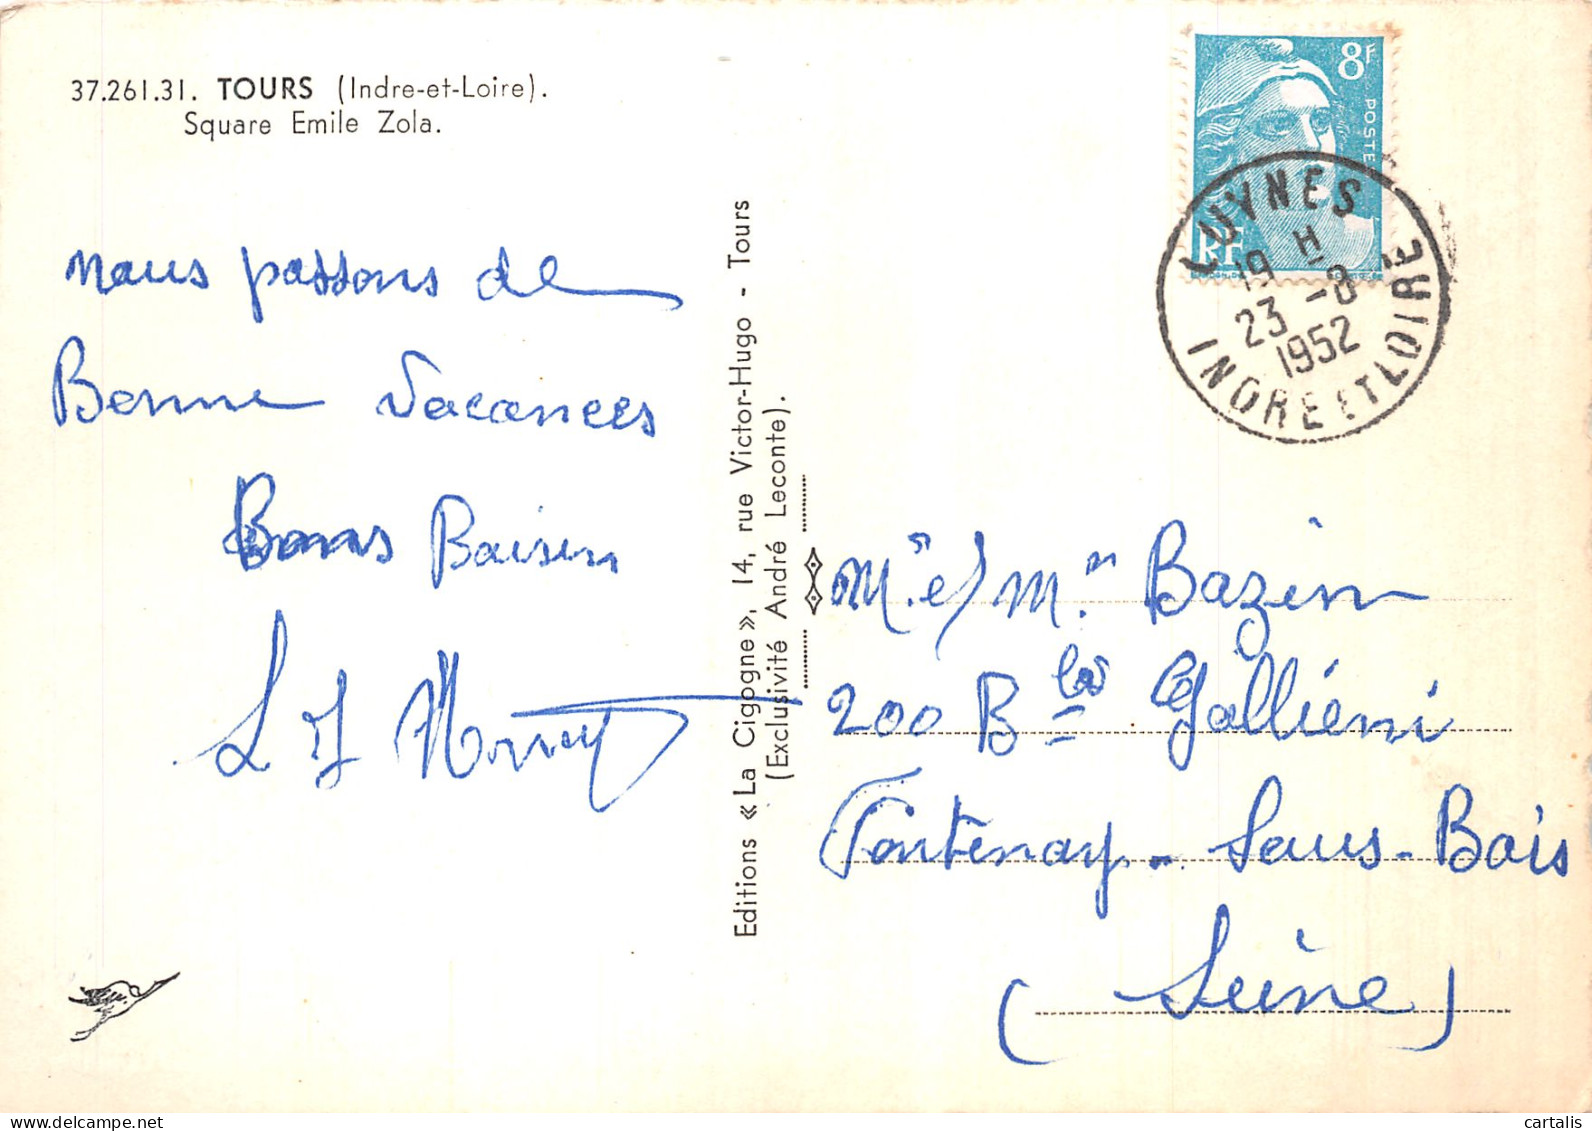 37.261.31. TOURS (Indre-et-Loire).
Square Emile Zola.
nous passons de
Bonne Vacances
Bons Baisers
Editions « La Cigogne », 14, rue Victor-Hugo - Tours
(Exclusivité André Leconte).
8F
POSTE
RF
LUYNES
19 H
23 -8
1952
INDRE ET LOIRE
Mr et Mm Bazin
200 Bld Galliéni
Fontenay-sous-Bois
(Seine)
cartalis
delcampe.net